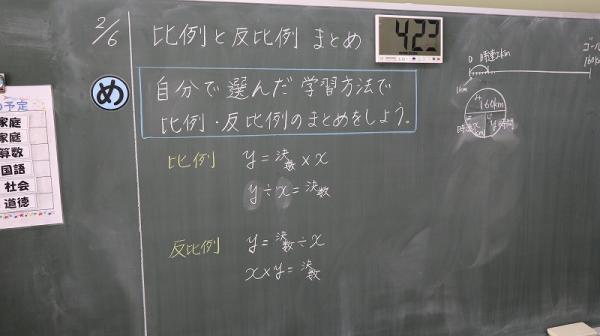 2/6
比例と反比例 まとめ
4 23
め
自分で選んだ学習方法で
比例・反比例のまとめをしよう。
比例
y=決数×x
y÷x=決数
反比例
y=決数÷x
x×y=決数
の予定
家庭
家庭
算数
国語
社会
道徳
0
ゴール
160km
1km
160km
y時間